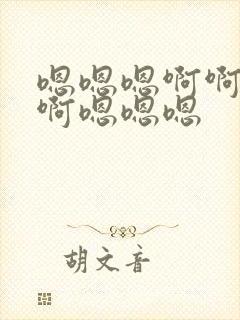 嗯嗯嗯啊啊
啊嗯嗯嗯
胡文音